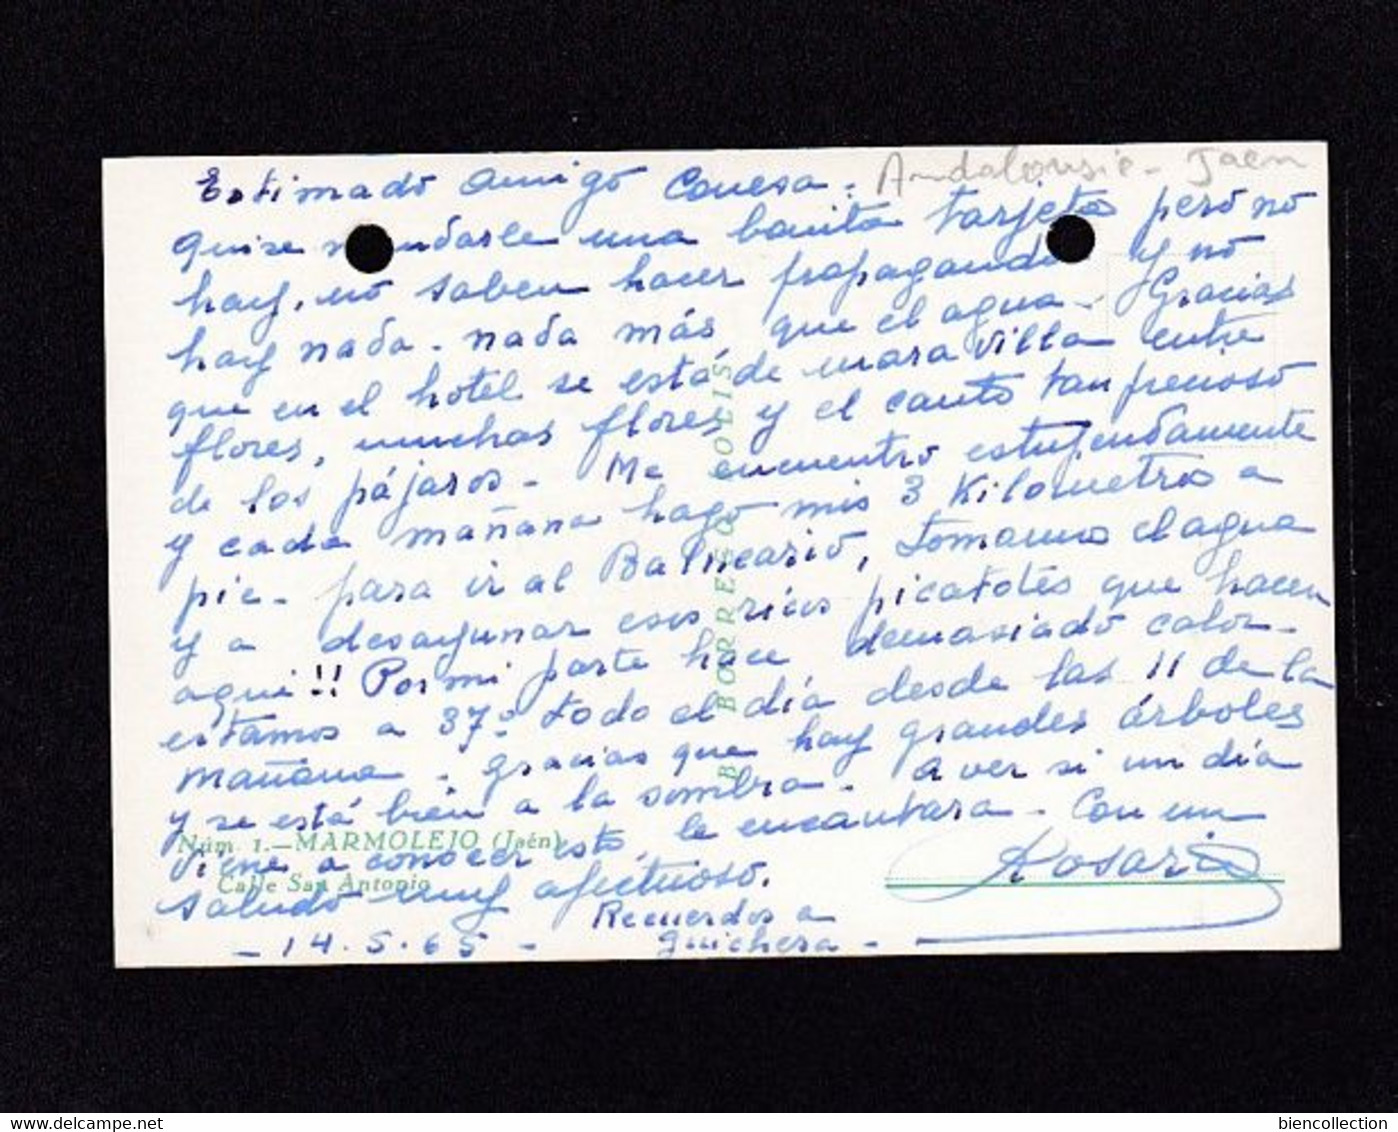 Estimado amigo Conesa:
Andalousie - Jaen
quise mandarle una bonita tarjeta pero no
hay, no saben hacer propaganda y no
hay nada. nada más que el agua. Gracias
que en el hotel se está de maravilla entre
flores, muchas flores y el canto tan precioso
de los pájaros - Me encuentro estupendamente
y cada mañana hago mis 3 Kilometros a
pie - para ir al Balneario, tomamos el agua
y a desayunar esos ricos picatotes que hacen
aqui!! Por mi parte hace demasiado calor -
estamos a 37º todo el día desde las 11 de la
mañana. gracias que hay grandes árboles
y se está bién a la sombra. A ver si un día
viene a conocer esto, le encantara - Con un
saludo muy afectuoso.
Rosario
Recuerdos a
Guichera -
- 14.5.65 -
Núm. 1.—MARMOLEJO (Jaén)
Calle San Antonio